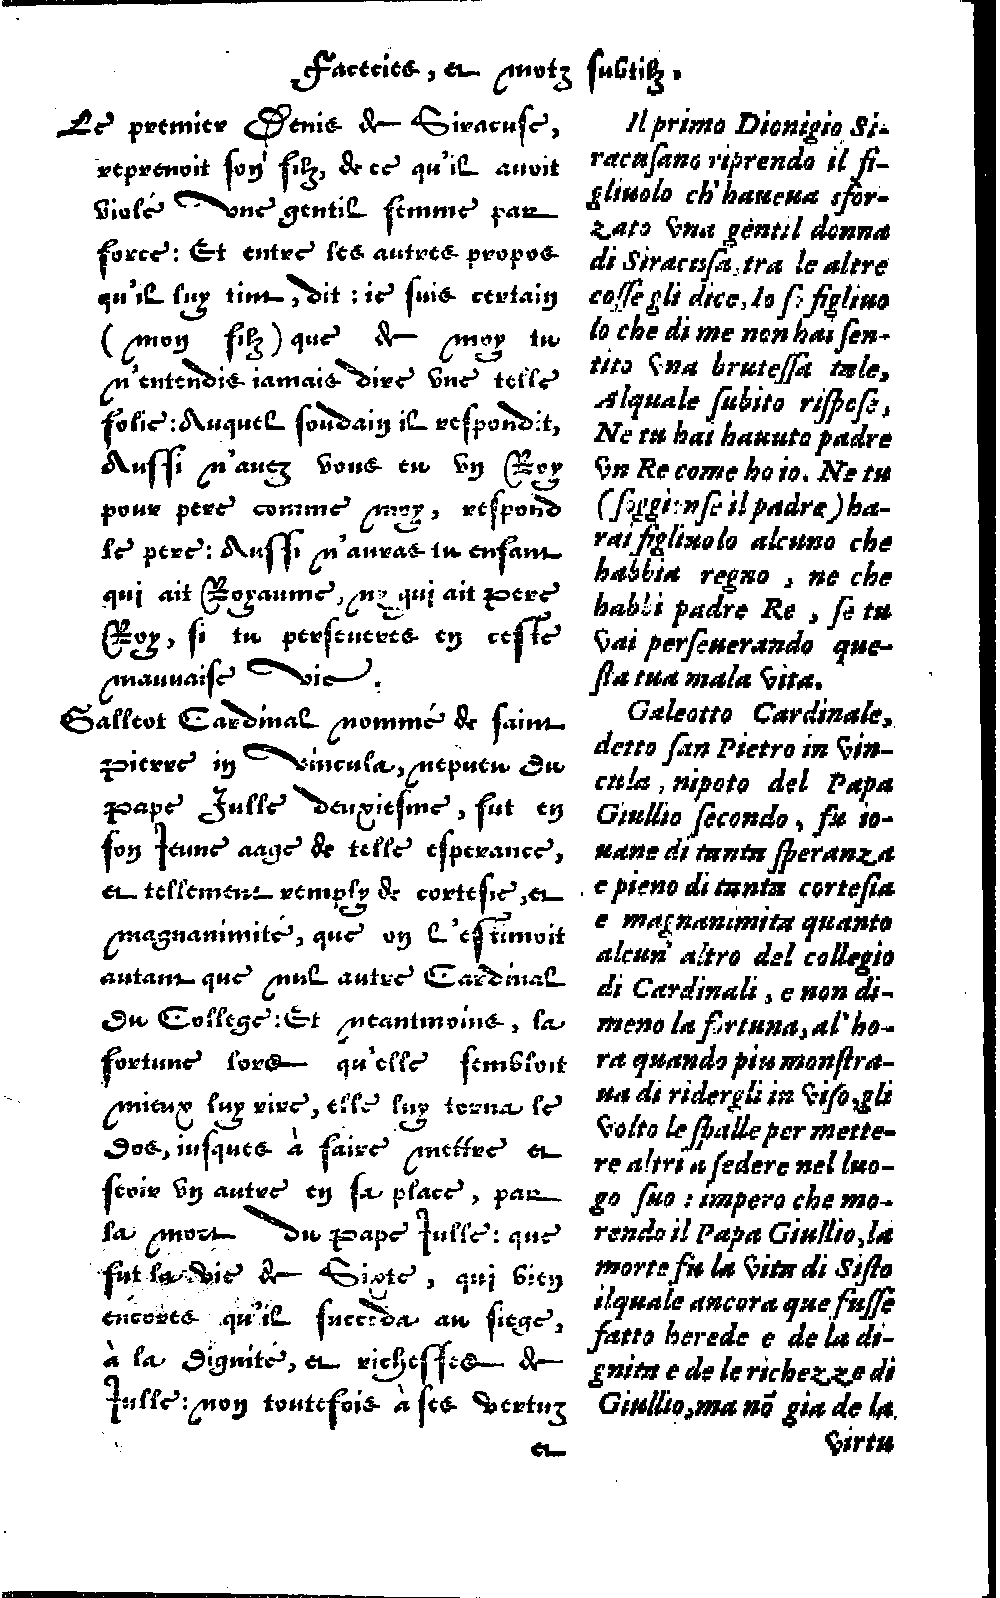 Facecies, et motz subtilz.
Le premier Denis de Siracuse,
reprenoit son filz, de ce qu'il avoit
violé vne gentil femme par
force: Et entre les autres propos
qu'il luy tint, dit: ie suis certain
(mon filz) que de moy tu
n'entendis iamais dire vne telle
folie: Auquel soudain il respondit,
Aussi n'auez vous eu vn Roy
pour pere comme moy, respond
le pere: Aussi n'auras tu enfant
qui ait Royaume, ny qui ait pere
Roy, si tu perseueres en ceste
mauuaise vie.
Galleot Cardinal nommé de saint
Pierre in vincula, nepueu du
Pape Julle deuxiesme, fut en
son Jeune aage de telle esperance,
et tellement remply de cortesie, et
magnanimité, que on l'estimoit
autant que nul autre Cardinal
du College: Et neantmoins, la
fortune lors qu'elle sembloit
mieux luy rire, elle luy torna le
dos, iusques à faire mettre et
seoir vn autre en sa place, par
la mort du Pape Julle: que
fut la vie de Sixte, qui bien
encores qu'il succeda au siege,
à la dignité, et richesses de
Julle: non toutefois à ses vertuz
et
Il primo Dionigio Si-
racusano riprendo il fi-
gliuolo ch'haueua sfor-
zato vna gentil donna
di Siracusa, tra le altre
cosse gli dice, Io so figliuo
lo che di me non hai sen-
tito vna brutessa tale,
Alquale subito rispese,
Ne tu hai hauuto padre
vn Re come ho io. Ne tu
(soggiunse il padre) ha-
rai figliuolo alcuno che
habbia regno, ne che
habbi padre Re, se tu
vai perseuerando que-
sta tua mala vita.
Galeotto Cardinale,
detto san Pietro in vin-
cula, nipoto del Papa
Giullio secondo, fu io-
uane di tanta speranza
e pieno di tanta cortesia
e magnanimita quanto
alcun' altro del collegio
di Cardinali, e non di-
meno la fortuna, al' ho-
ra quando piu monstra-
ua di ridergli in viso, gli
volto le spalle per mette-
re altri a sedere nel luo-
go suo: impero che mo-
rendo il Papa Giullio, la
morte fu la vita di Sisto
ilquale ancora que fusse
fatto herede e de la di-
gnita e de le richezze di
Giullio, ma nõ gia de la
virtu